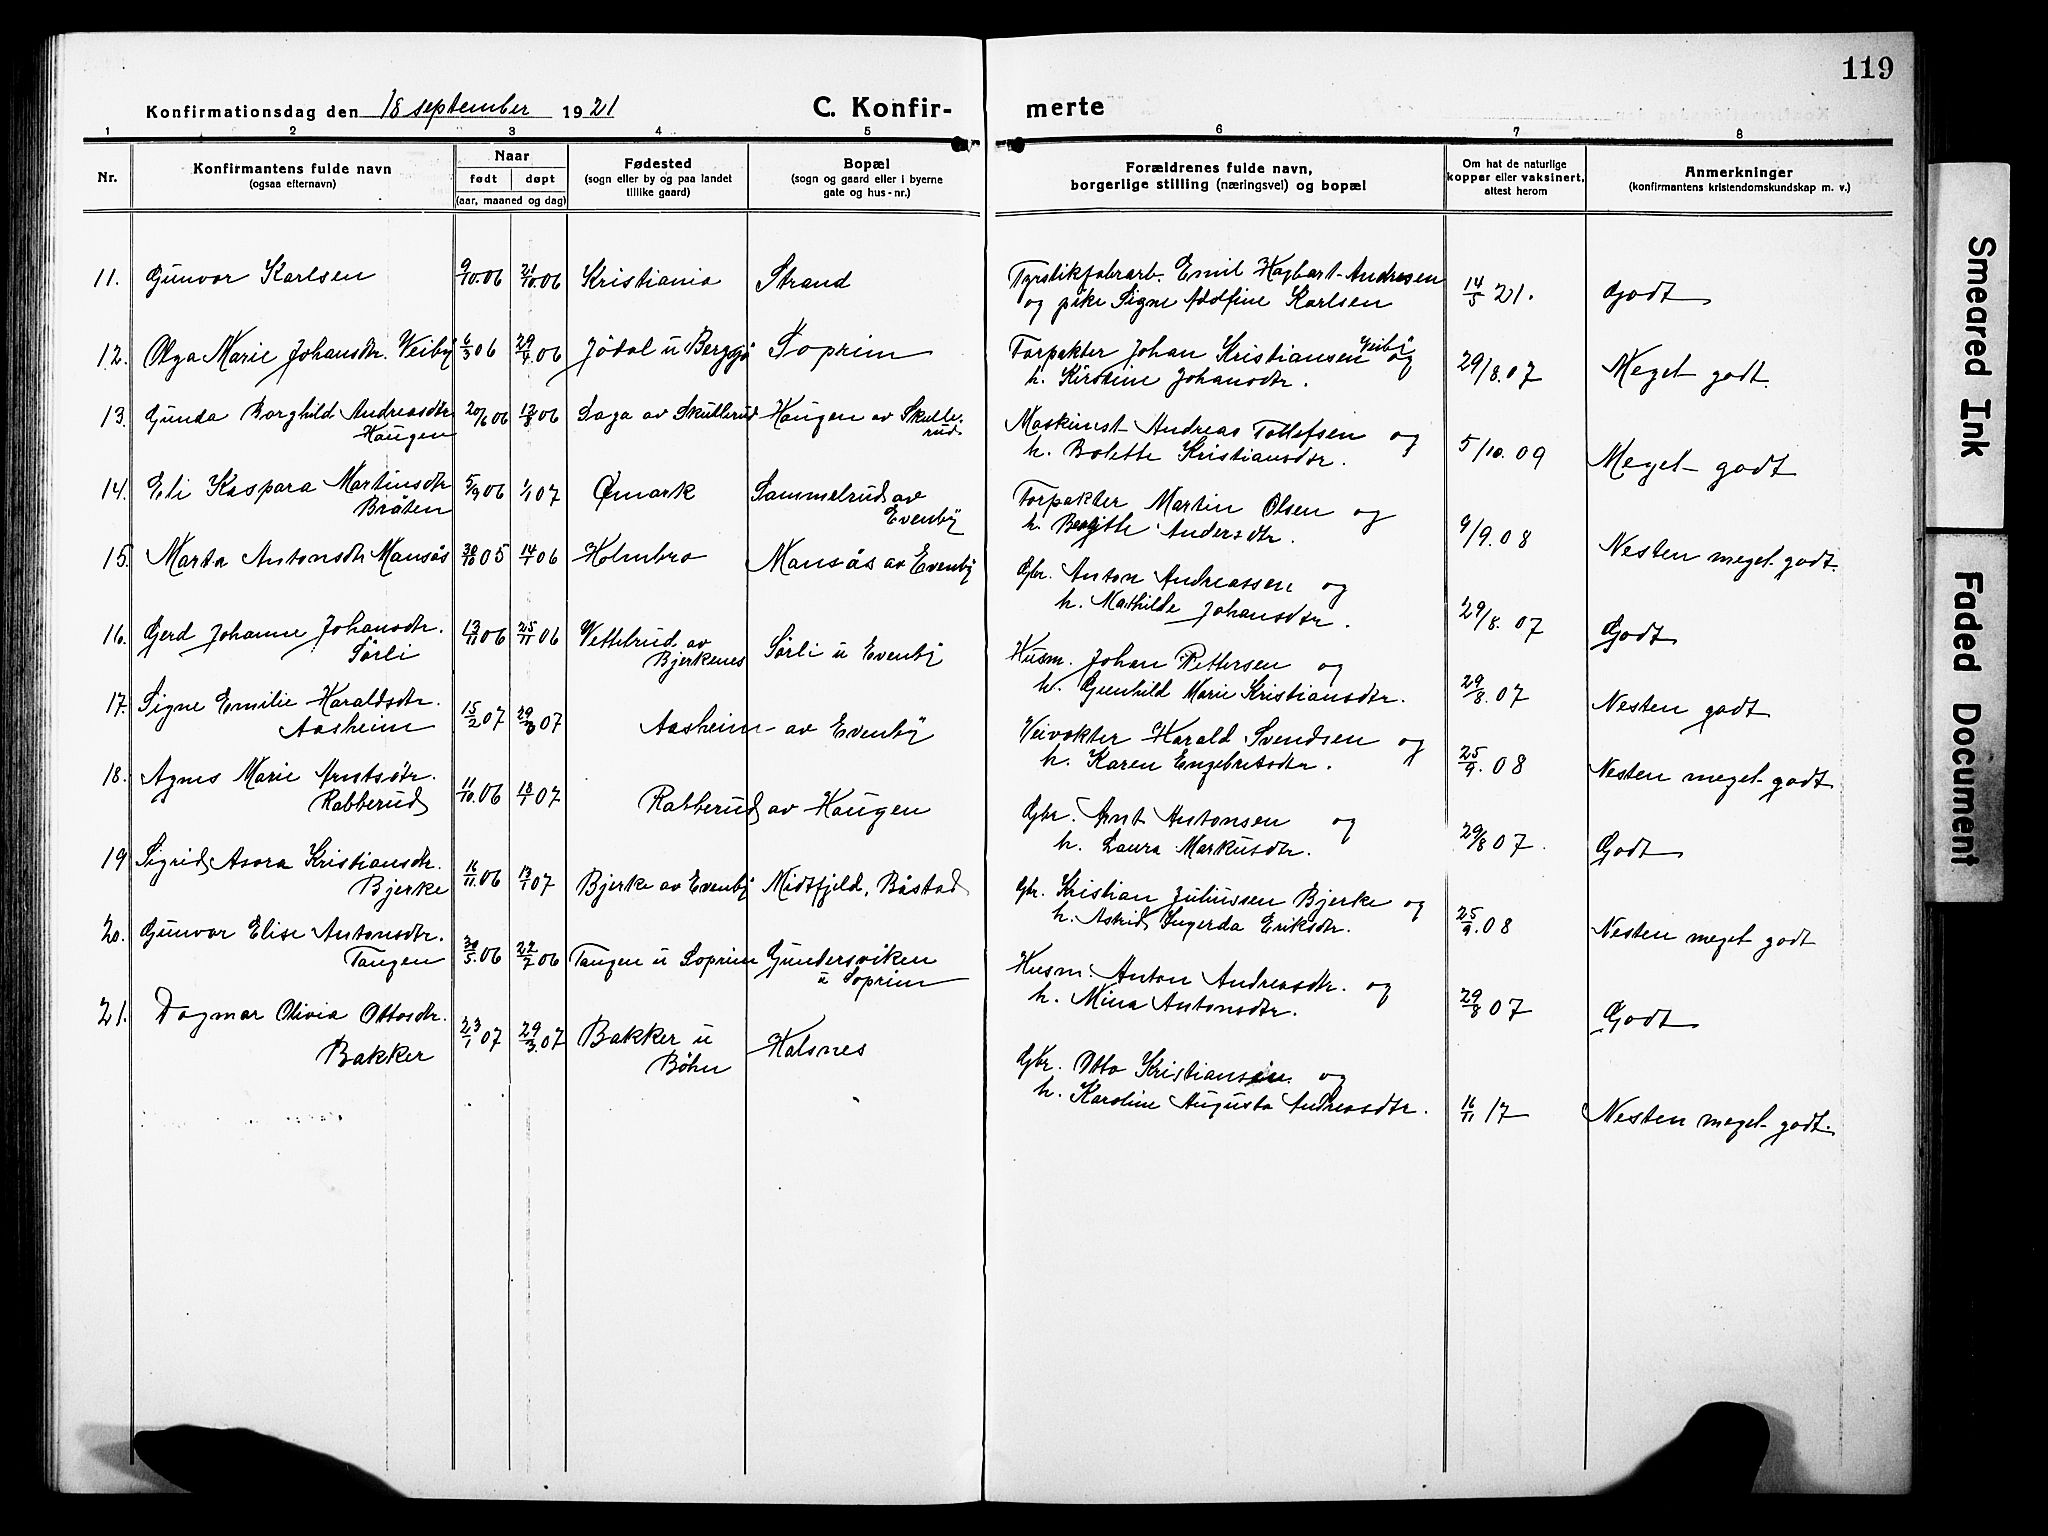 119
Konfirmationsdag den 18 september 1921 C. Konfir- merte
1 2 3 4 5 6 7 8
Nr.
Konfirmantens fulde navn
(ogsaa efternavn)
Naar
født døpt
(aar, maaned og dag)
Fødested
(sogn eller by og paa landet
tillike gaard)
Bopæl
(sogn og gaard eller i byerne
gate og hus-nr.)
Forældrenes fulde navn,
borgerlige stilling (næringsvei) og bopæl
Om hat de naturlige
kopper eller vaksinert,
attest herom
Anmerkninger
(konfirmantens kristendomskundskap m. v.)
11. Gunvor Karlsen 9/10.06 21/10.06 Kristiania Strand
Fyrstikfabrarb. Emil Hagbart Andresen
og pike Signe Adolfine Karlsen 14/5 21. Godt
12. Olga Marie Johansdtr. Veiby 6/3 06 29/4 06 Jødal u Bergsjø Soprim
Forpakter Johan Kristiansen Veiby og
h. Kirstine Johansdtr. 29/8.07 Meget godt.
13. Gunda Borghild Andreasdtr 20/6 06 12/8 06 Saga av Skullerud Haugen av Skulle-
Haugen rud.
Maskinist Andreas Tollefsen og
h. Bolette Kristiansdtr. 5/10.09 Meget godt
14. Eli Kaspara Martinsdtr 5/9 06 1/1 07 Ømark Sammelrud av
Bråten Evenby
Forpakter Martin Olsen og
h. Bergitte Andersdtr. 9/9.08 Nesten meget godt.
15. Marta Antonsdtr Mansås 30/10 05 14/1 06 Holmbro Mansås av Evenby
Gbr. Anton Andreassen og
h. Mathilde Johansdtr. 29/8.07 Godt
16. Gerd Johanne Johansdtr. 13/11 06 25/11 06 Vettebrud av Sørli u Evenby
Sørli Bjerkenes
Husm. Johan Pettersen og
h. Gunhild Marie Kristiansdtr. 29/8.07 Nesten godt
17. Signe Emilie Haraldsdtr.
Aasheim 15/2 07 29/3 07 Aasheim av Evenby
Veivokter Harald Svendsen og
h. Karen Engebretsdtr. 25/9.08 Nesten meget godt
18. Agnes Marie Arntsdtr.
Rabberud 11/10.06 18/1 07 Rabberud av Haugen
Gbr. Arnt Antonsen og
h. Laura Markusdtr. 29/8 07. Godt
19 Sigrid Asora Kristiansdtr.
Bjerke 16/11.06 13/1 07 Bjerke av Evenby Midtfjeld, Båstad
Gbr. Kristian Juliussen Bjerke og
h. Astrid Ingerda Eriksdtr. 25/9.08 Nesten meget godt
20. Gunvor Elise Antonsdtr.
Tangen 30/5.06 22/7 06 Tangen u Soprim Gundersviken
u Soprim
Husm. Anton Andreasdtr. og
h. Mina Antonsdtr. 29/8 07 Godt
21. Dagmar Olivia Ottosdtr.
Bakker 23/1 07 29/3.07 Bakker u Halsnes
Bøhn
Gbr. Otto Kristiansen og
h. Karoline Augusta Andreasdtr. 16/11 17 Nesten meget godt.
Smeared Ink
Faded Document